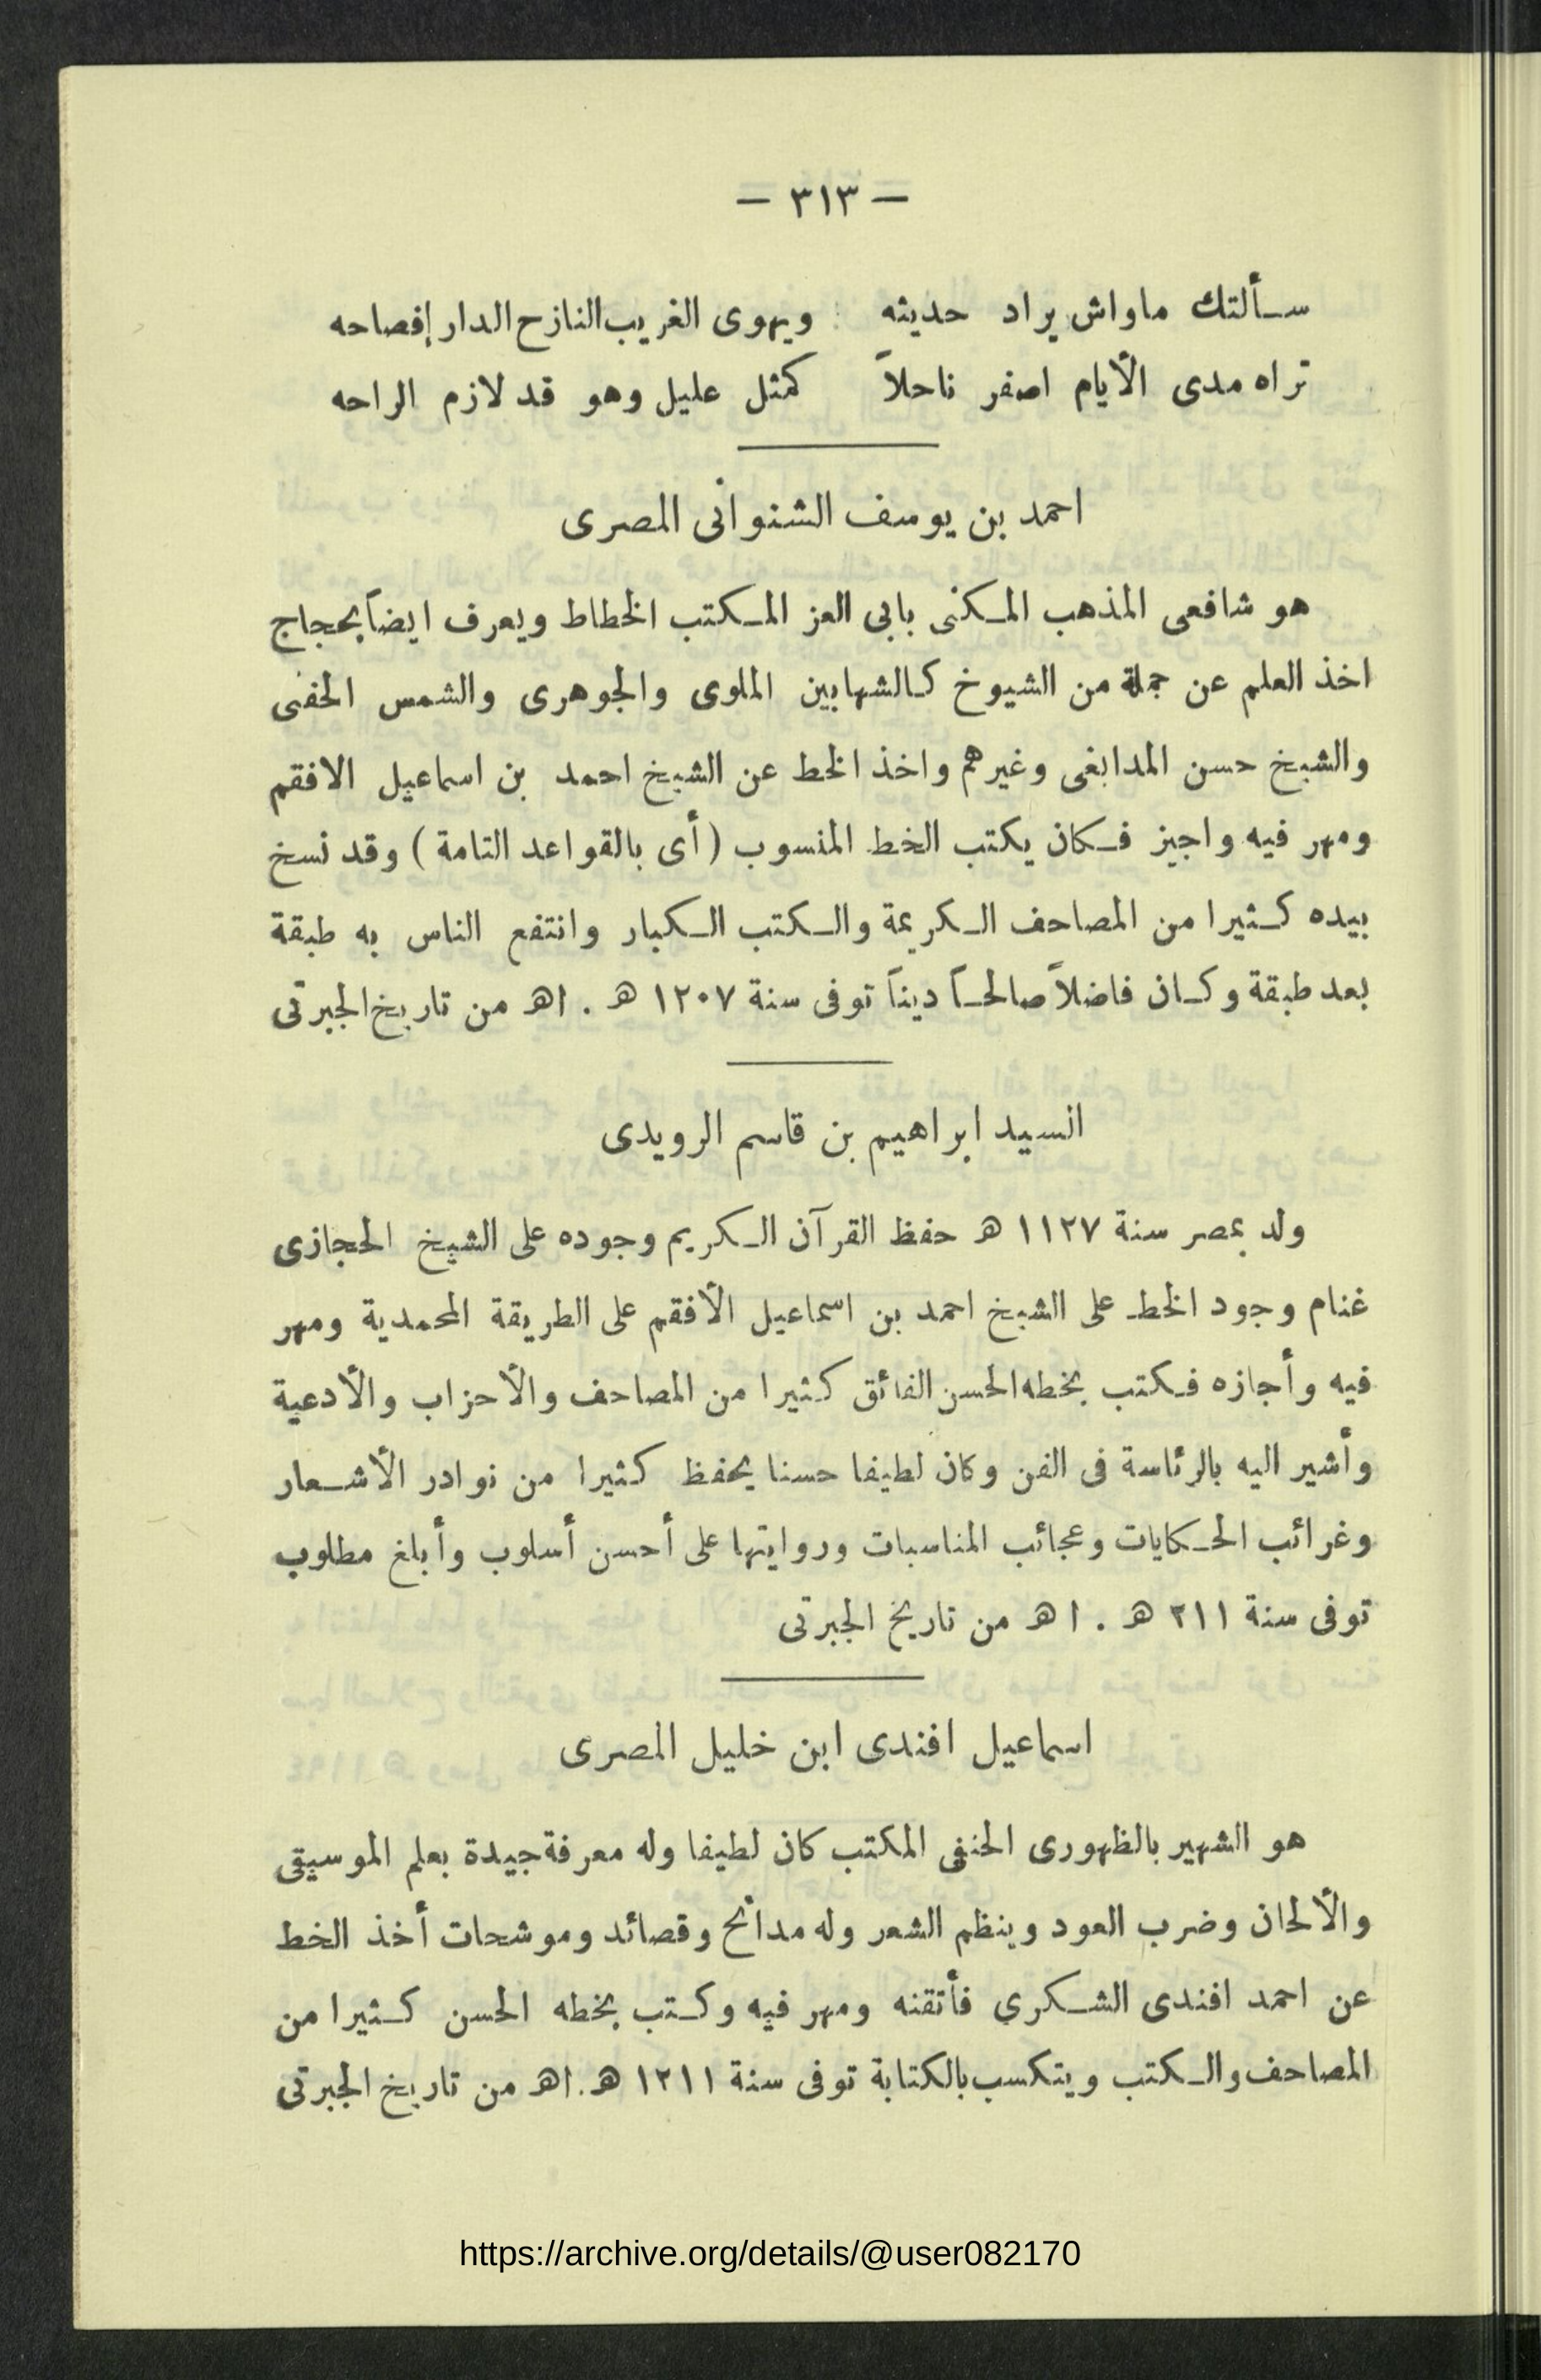 — ٣١٣ —
سألتك ماواش يراد حديثه ويهوى الغريب النازح الدار إفصاحه
تراه مدى الأيام اصفر ناحلاً كمثل عليل وهو قد لازم الراحه
احمد بن يوسف الشنوانى المصرى
هو شافعى المذهب المكنى بابى العز المكتب الخطاط ويعرف ايضاً بحجاج
اخذ العلم عن جملة من الشيوخ كالشهابين الملوى والجوهرى والشمس الحفنى
والشيخ حسن المدابغى وغيرهم واخذ الخط عن الشيخ احمد بن اسماعيل الافقم
ومهر فيه واجيز فكان يكتب الخط المنسوب (أى بالقواعد التامة) وقد نسخ
بيده كثيرا من المصاحف الكريمة والكتب الكبار وانتفع الناس به طبقة
بعد طبقة وكان فاضلاً صالحاً ديناً توفى سنة ١٢٠٧ هـ . اهـ من تاريخ الجبرتى
السيد ابراهيم بن قاسم الرويدى
ولد بمصر سنة ١١٢٧ هـ حفظ القرآن الكريم وجوده على الشيخ الحجازى
غنام وجود الخط على الشيخ احمد بن اسماعيل الأفقم على الطريقة المحمدية ومهر
فيه وأجازه فكتب بخطه الحسن الفائق كثيرا من المصاحف والأحزاب والأدعية
وأشير اليه بالرئاسة فى الفن وكان لطيفا حسنا يحفظ كثيرا من نوادر الأشعار
وغرائب الحكايات وعجائب المناسبات وروايتها على أحسن أسلوب وأبلغ مطلوب
توفى سنة ٢١١ هـ . ا هـ من تاريخ الجبرتى
اسماعيل افندى ابن خليل المصرى
هو الشهير بالظهورى الحنفى المكتب كان لطيفا وله معرفة جيدة بعلم الموسيقى
والألحان وضرب العود وينظم الشعر وله مدائح وقصائد وموشحات أخذ الخط
عن احمد افندى الشكري فأتقنه ومهر فيه وكتب بخطه الحسن كثيرا من
المصاحف والكتب ويتكسب بالكتابة توفى سنة ١٢١١ هـ . اهـ من تاريخ الجبرتى
https://archive.org/details/@user082170